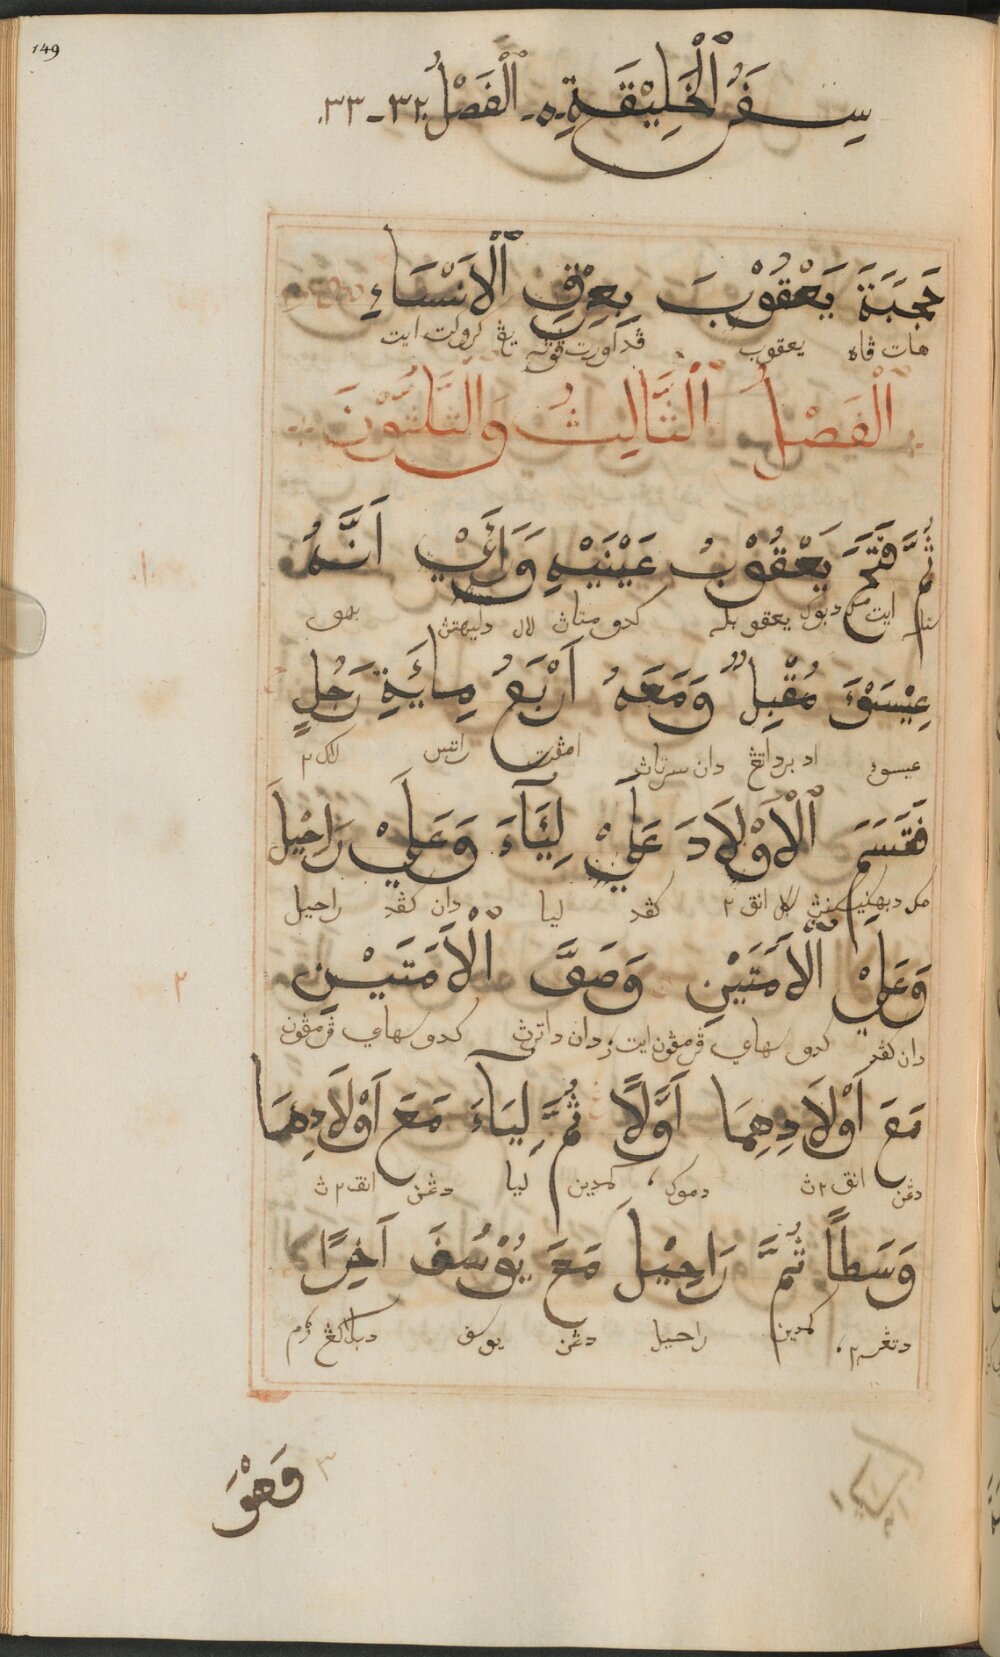 149
سِفْرُ ٱلْخَلِيْقَةِ ـ ه ـ ٱلْفَصْلُ ٣٢ ـ ٣٣.
حُجْبَةَ يَعْقُوْبَ بِعِرْقِ ٱلْاَنْسَاءِ
هات ڤاه يعقوب ڤد اورت يڠ كروكت ايت
ٱلْفَصْلُ ٱلثَّالِثُ وَٱلثَّلٰثُوْنَ
ثُمَّ فَتَحَ يَعْقُوْبُ عَيْنَيْهِ وَرَاَيْ اَنَّهُ
ايت مك دبوك يعقوبله كدو متاڽ لال دليهتڽ بهو
عِيْسَوْءَ مُقْبِلٌ وَمَعَهُ اَرْبَعُ مِائَةِ رَجُلٍ
عيسوء اد برداتڠ دان سرتاڽ امڤت راتس لاك٢
فَقَسَمَ ٱلْاَوْلَادَ عَلَيْ لِيَٓاءَ وَعَلَيْ رَاحِيْلَ
مك دبهكيكنڽ انق٢ كڤد ليا دان كڤد راحيل
وَعَلَيْ ٱلْاَمَتَيْنِ وَصَفَّ ٱلْاَمَتَيْنِ
دان كڤد كدو سهاي ڤرمڤون ايت، دان داترڽ كدو سهاي ڤرمڤون
مَعَ اَوْلَادِهِمَا اَوَّلًا ثُمَّ لِيَٓاءَ مَعَ اَوْلَادِهِمَا
دڠن انق٢ڽ دموك، كمدين ليا دڠن انق٢ڽ
وَسَطاً ثُمَّ رَاحِيْلَ مَعَ يُوْسُفَ اٰخِرًا
دتڠه٢، كمدين راحيل دڠن يوسف دبلاكڠ
١.
٢
٣
وَهْوَ